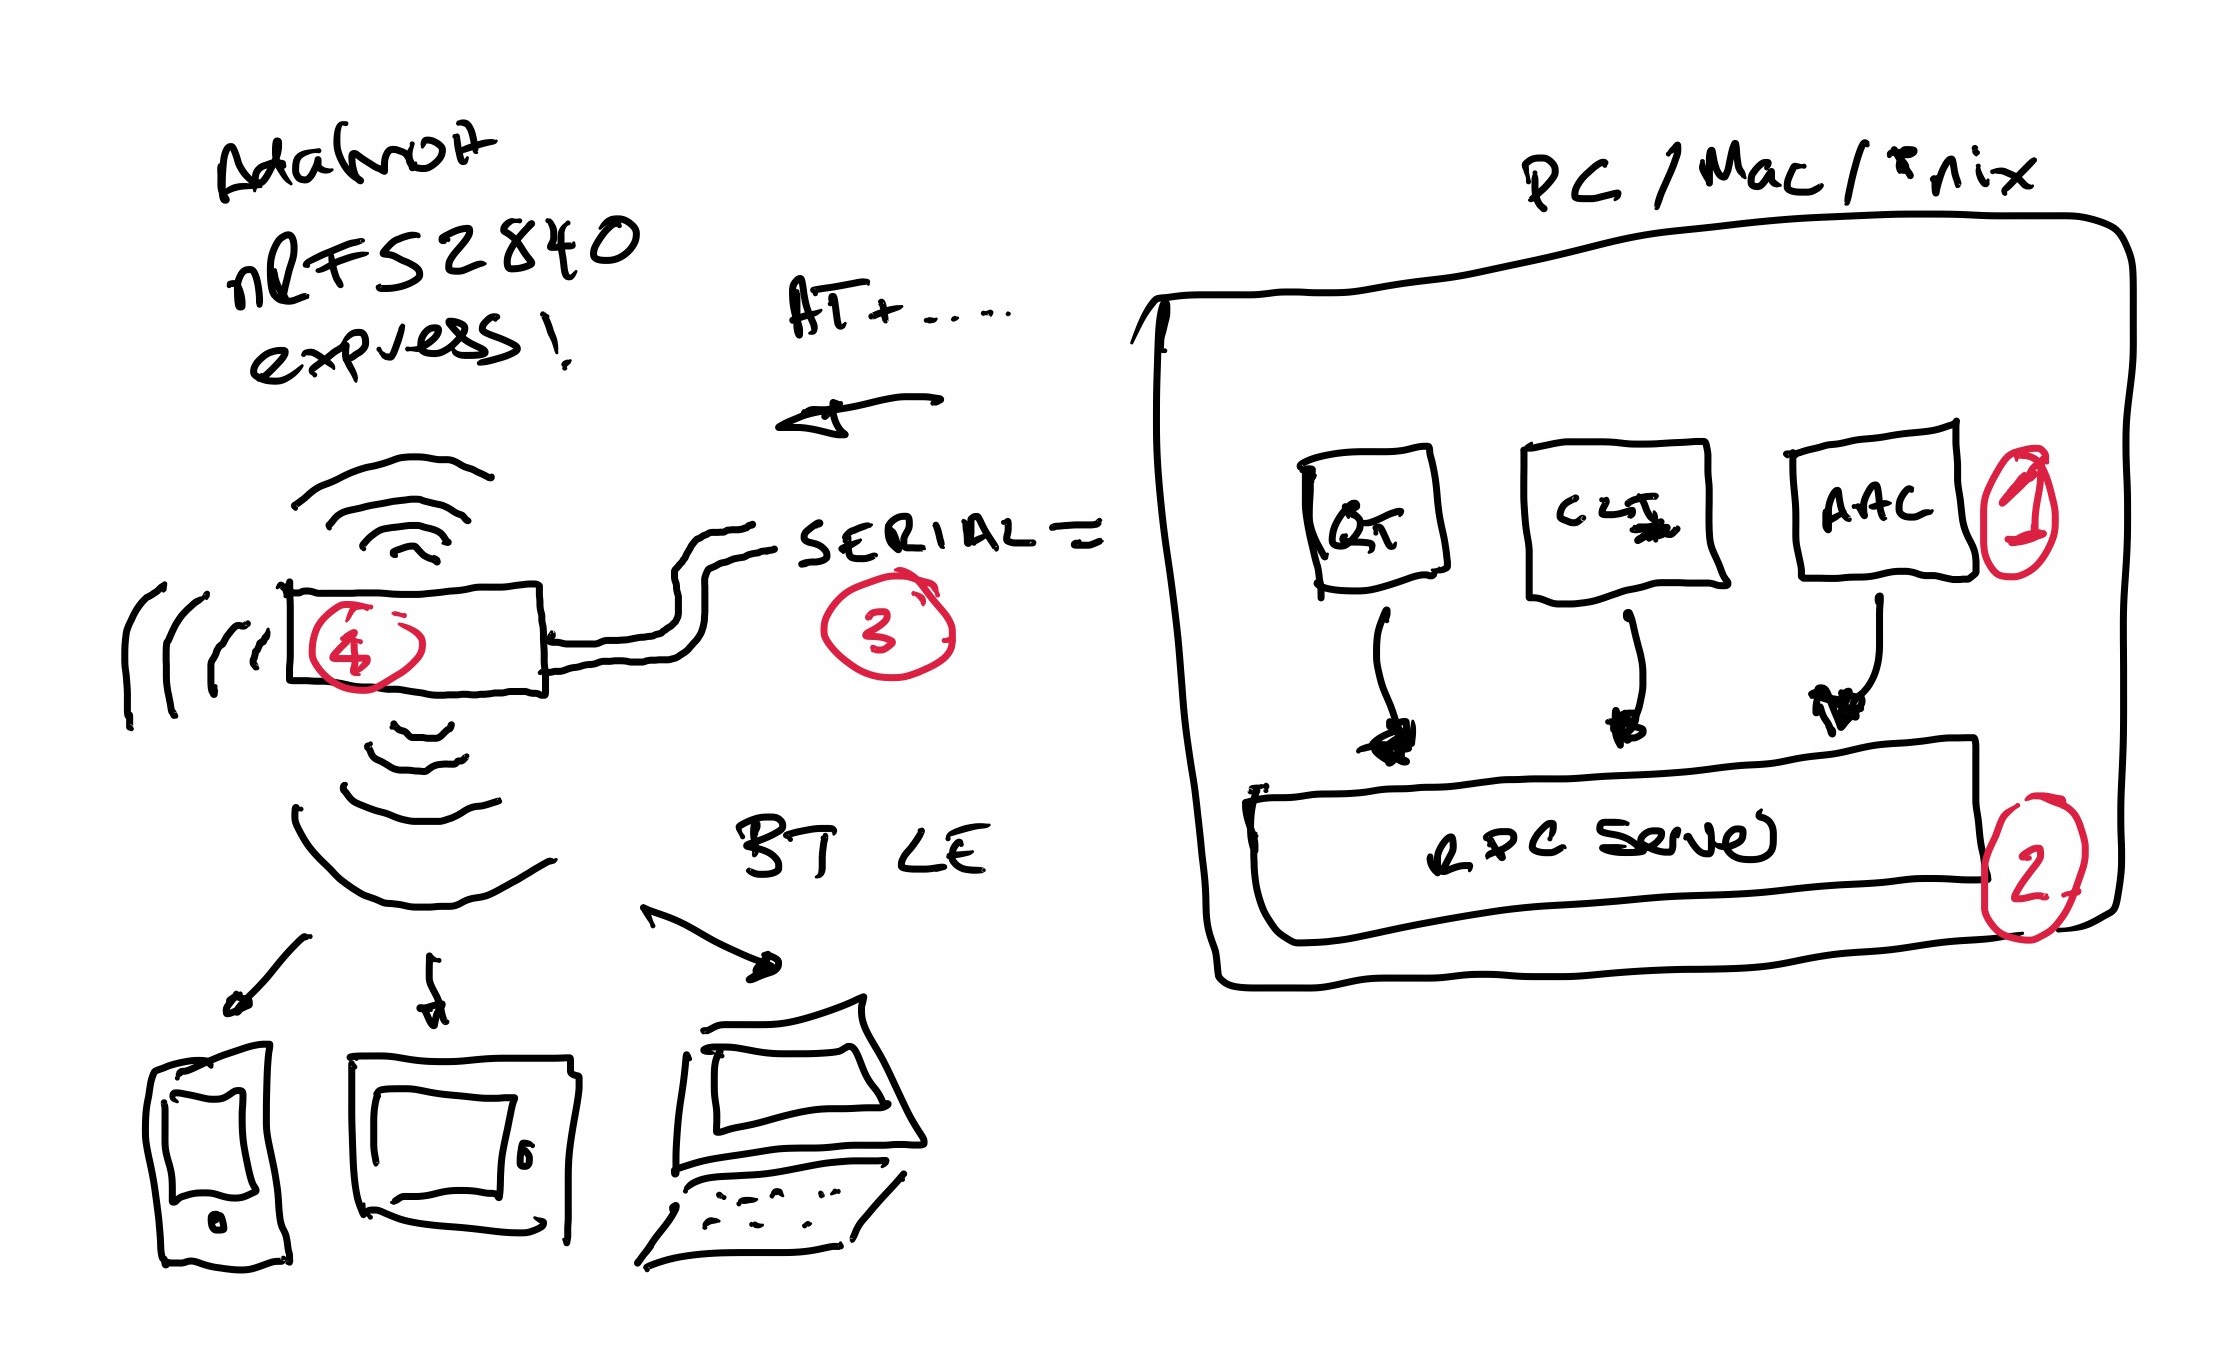 Adafruit
nRF52840
express!
AT+.....
SERIAL =
3
4
BT LE
PC/Mac/*nix
QT
CLI
AAC
1
RPC Server
2